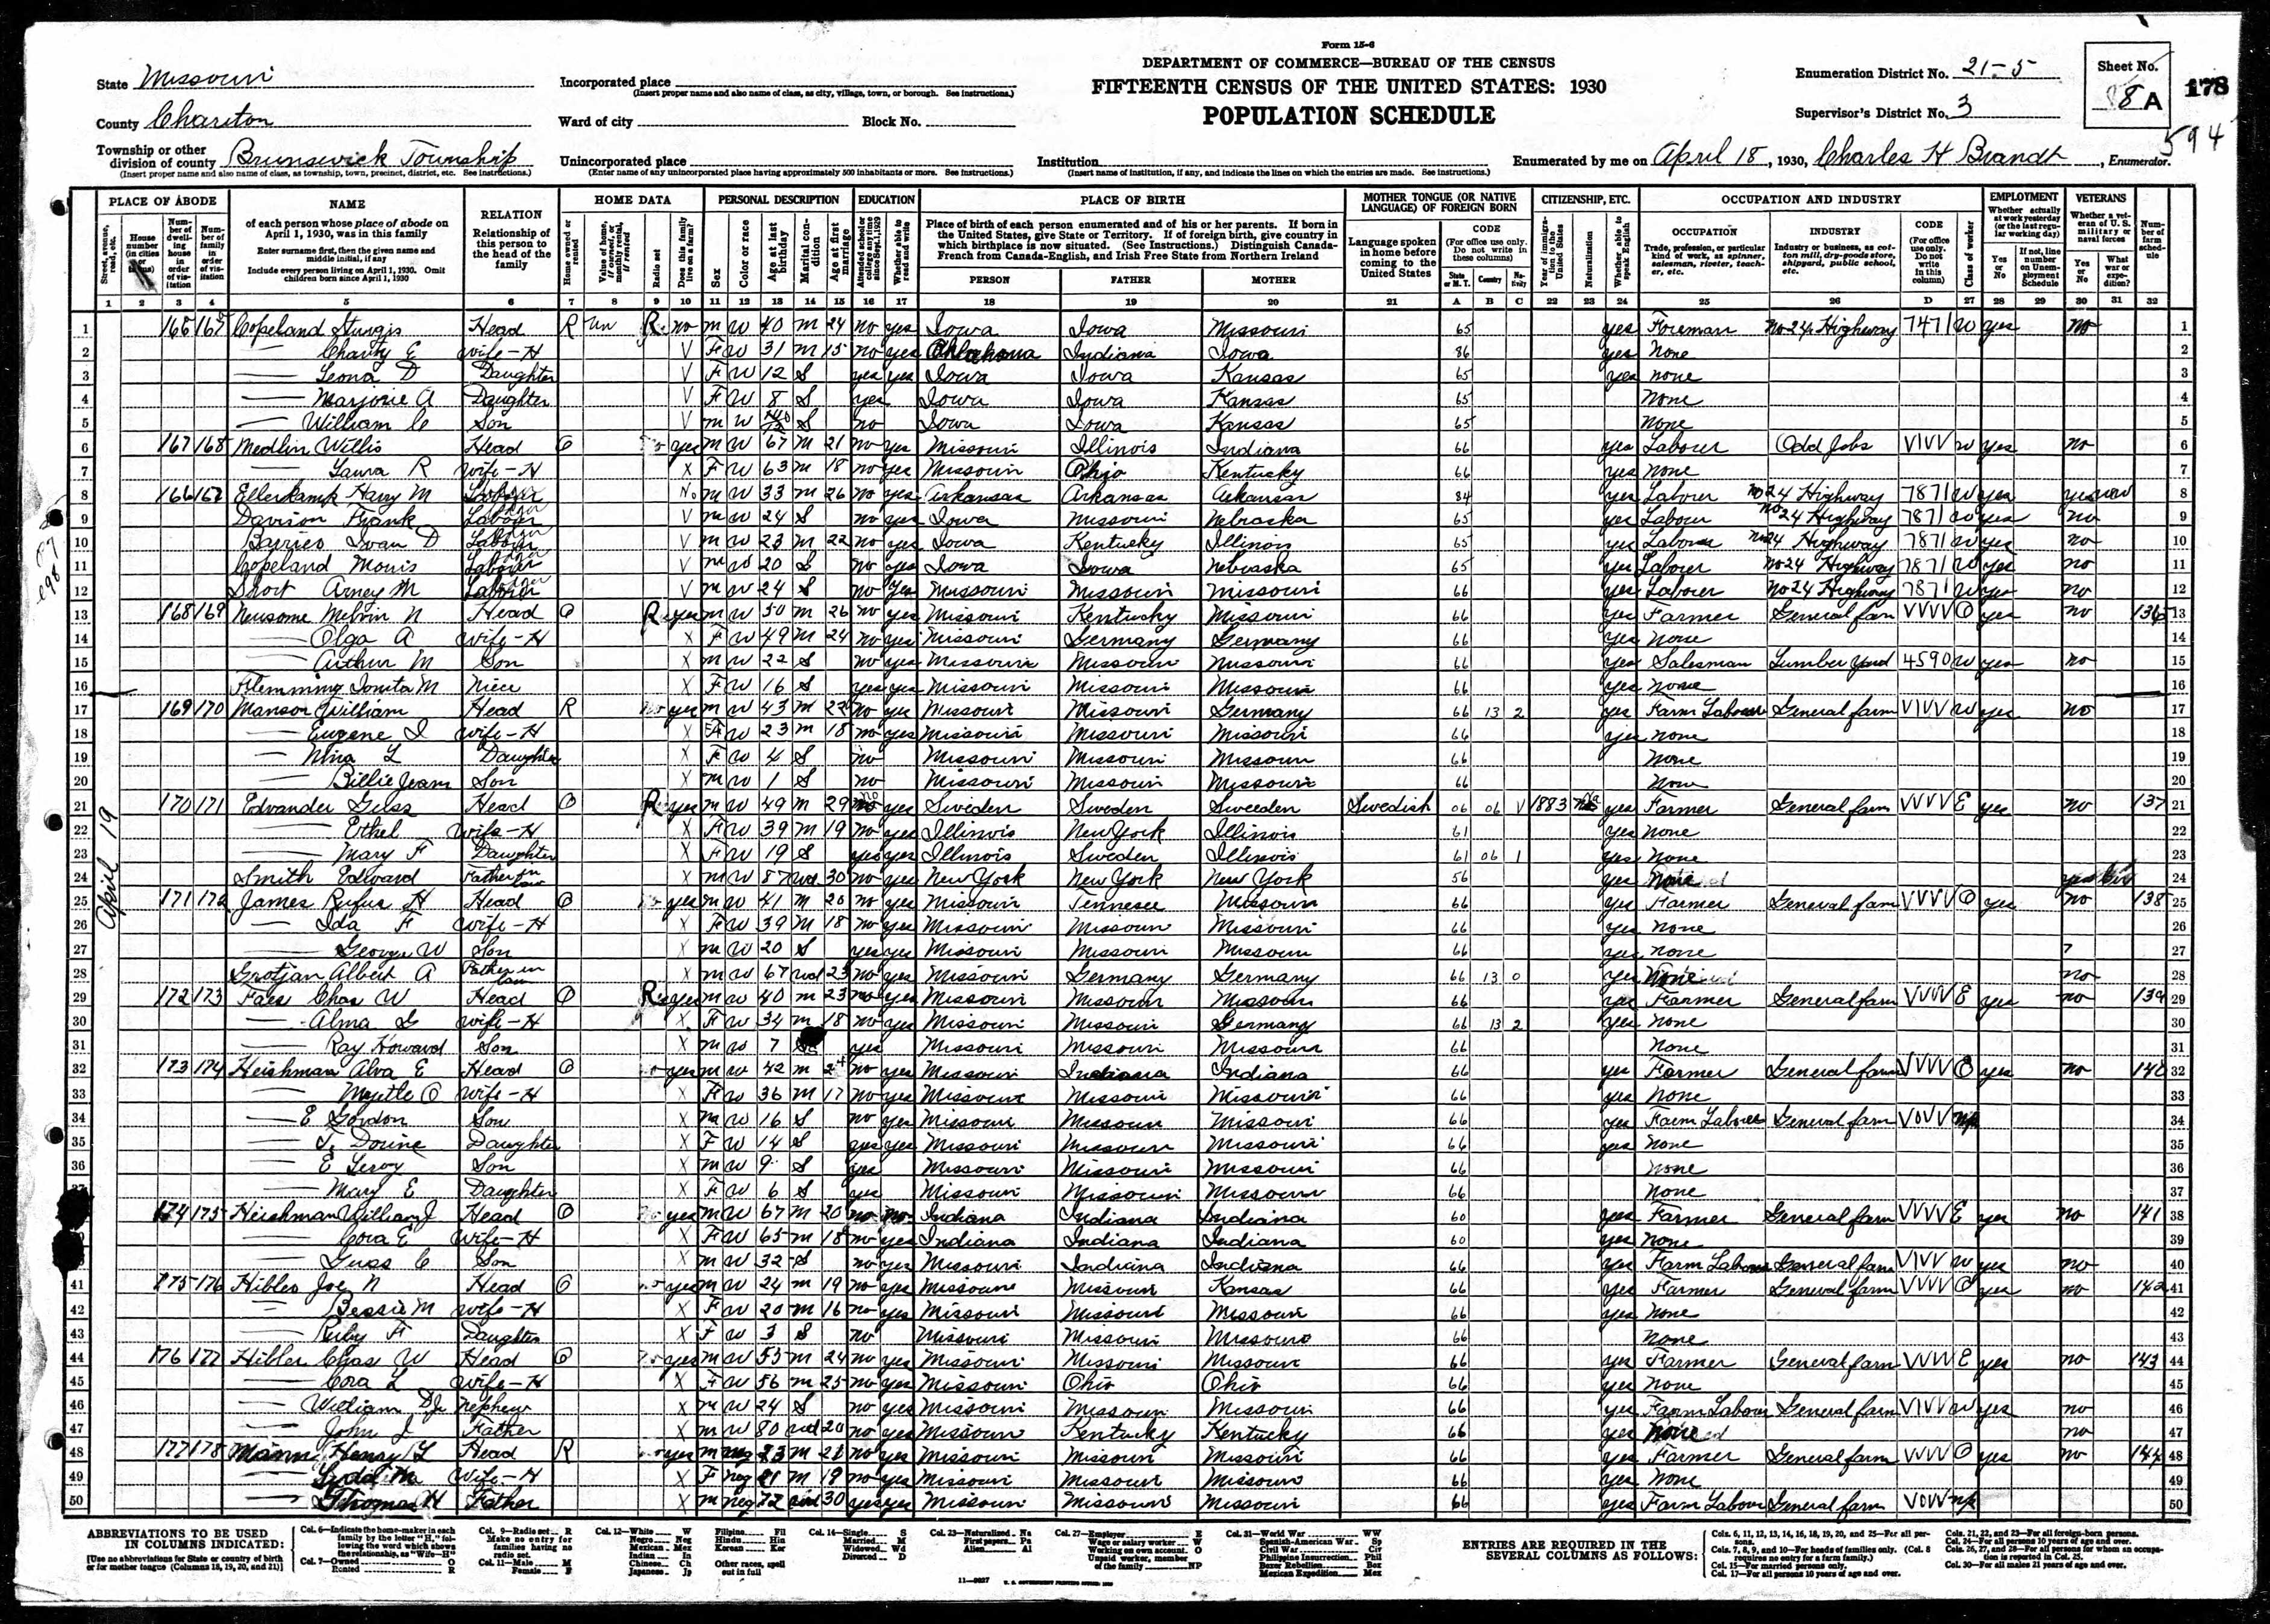 Form 15-6
DEPARTMENT OF COMMERCE—BUREAU OF THE CENSUS
FIFTEENTH CENSUS OF THE UNITED STATES: 1930
POPULATION SCHEDULE
State Missouri
County Chariton
Township or other division of county Brunswick Township
(Insert proper name and also name of class, as township, town, precinct, district, etc. See instructions.)
Incorporated place
(Insert proper name and also name of class, as city, village, town, or borough. See instructions.)
Ward of city Block No.
Unincorporated place
(Enter name of any unincorporated place having approximately 500 inhabitants or more. See instructions.)
Institution
(Insert name of institution, if any, and indicate the lines on which the entries are made. See instructions.)
Enumeration District No. 21-5
Supervisor's District No. 3
Sheet No. 8 A
178
594
Enumerated by me on April 18, 1930, Charles H Brandt, Enumerator.
PLACE OF ABODE NAME RELATION HOME DATA PERSONAL DESCRIPTION EDUCATION PLACE OF BIRTH MOTHER TONGUE (OR NATIVE LANGUAGE) OF FOREIGN BORN CITIZENSHIP, ETC. OCCUPATION AND INDUSTRY EMPLOYMENT VETERANS
PERSON FATHER MOTHER
1 2 3 4 5 6 7 8 9 10 11 12 13 14 15 16 17 18 19 20 21 A B C 22 23 24 25 26 D 27 28 29 30 31 32
1 Copeland Sturgis Head R Un R no m W 40 m 24 no yes Iowa Iowa Missouri 65 yes Foreman No 24 Highway 7471 W yes no
2 Charity E wife-H V F W 31 m 15 no yes Oklahoma Indiana Iowa 86 yes None
3 Leona D Daughter V F W 12 S yes yes Iowa Iowa Kansas 65 yes none
4 Marjorie A Daughter V F W 8 S yes Iowa Iowa Kansas 65 None
5 William C Son V m W S no Iowa Iowa Kansas 65 None
6 167 168 Medlin Willis Head O yes m W 67 m 21 no yes Missouri Illinois Indiana 66 yes Labourer Odd Jobs VIVV w yes no
7 Laura R wife-H X F W 63 m 18 no yes Missouri Ohio Kentucky 66 yes none
8 Ellerkamp Harry M No m W 33 m 26 no yes Arkansas Arkansas Arkansas 84 yes Laborer No 24 Highway 7871 W yes yes WW
9 Davison Frank V m W 24 S no yes Iowa Missouri Nebraska 65 yes Labour No 24 Highway 7871 W yes no
10 Ivan D V m W 23 m 22 no yes Iowa Kentucky Illinois 65 yes No 24 Highway 7871 W yes no
11 Copeland V m W 20 S no yes Iowa Iowa Nebraska 65 yes Labourer No 24 Highway 7871 W yes no
12 Short Arney M V m W 24 S no yes Missouri Missouri Missouri 66 yes Labourer No 24 Highway 7871 W yes no
13 168 169 Newsome Melvin N Head O R yes m W 50 m 26 no yes Missouri Kentucky Missouri 66 yes Farmer General farm VVVV O yes no 136
14 Olga A wife-H X F W 49 m 24 no yes Missouri Germany Germany 66 yes None
15 Arthur M Son X m W 22 S no yes Missouri Missouri Missouri 66 yes Salesman Lumber Yard 4590 W yes no
16 Flemming M Niece X F W 16 S yes yes Missouri Missouri Missouri 66 yes none
April 19
17 169 170 Manson William Head R no yes m W 43 m 22 no yes Missouri Missouri Germany 66 13 2 yes Farm Labour General farm VIVV W yes no
18 Eugene I wife-H X F W 23 m 18 no yes Missouri Missouri Missouri 66 yes none
19 Nina L Daughter X F W 4 S no Missouri Missouri Missouri 66 None
20 Billie Jeam Son X m W 1 S no Missouri Missouri Missouri 66 None
21 170 171 Edvander Head O R yes m W 49 m 29 no yes Sweden Sweden Sweeden Swedish 06 06 V 1883 yes Farmer General farm VVVV E yes no 137
22 Ethel wife-H X F W 39 m 19 no yes Illinois New York Illinois 61 yes none
23 Mary F Daughter X F W 19 S yes yes Illinois Sweden Illinois 61 06 1 yes None
24 Smith Edward Father in law X m W 87 wd 30 no yes New York New York New York 56 yes None
25 171 172 James Rufus H Head O yes m W 41 m 20 no yes Missouri Tennesee Missouri 66 yes Farmer General farm VVVV O yes no 138
26 Ida F wife-H X F W 39 M 18 no yes Missouri Missouri Missouri 66 yes none
27 George W Son X m W 20 S yes yes Missouri Missouri Missouri 66 yes none
28 Grotjan Albert A Father in law X m W 67 wd 23 no yes Missouri Germany Germany 66 13 0 yes None no
29 172 173 Faes Chas W Head O R yes m W 40 m 23 no yes Missouri Missouri Missouri 66 yes Farmer General farm VVVV E yes no 139
30 Alma G wife-H X F W 34 m 18 no yes Missouri Missouri Germany 66 13 2 yes none
31 Ray Howard Son X m W 7 S yes Missouri Missouri Missouri 66 none
32 173 174 Heishman Alva E Head O yes m W 42 m 24 no yes Missouri Indiana Indiana 66 yes Farmer General farm VVVV O yes no 140
33 Myrtle O wife-H X F W 36 m 17 no yes Missouri Missouri Missouri 66 yes none
34 E Gordon Son X m W 16 S no yes Missouri Missouri Missouri 66 yes Farm Laborer General farm VOVV NP
35 Daughter X F W 14 S yes yes Missouri Missouri Missouri 66 yes none
36 E Leroy Son X m W 9 S yes Missouri Missouri Missouri 66 none
37 Mary E Daughter X F W 6 S yes Missouri Missouri Missouri 66 None
38 174 175 Heishman William J Head O yes m W 67 m 20 no no Indiana Indiana Indiana 60 yes Farmer General farm VVVV E yes no 141
39 Cora E wife-H X F W 65 m 18 no yes Indiana Indiana Indiana 60 yes none
40 Guss C Son X m W 32 S no yes Missouri Indiana Indiana 66 yes Farm Labour General farm VIVV W yes no
41 175 176 Hibler Joe N Head O no yes m W 24 m 19 no yes Missouri Missouri Kansas 66 yes Farmer General farm VVVV O yes no 142
42 Bessie M wife-H X F W 20 m 16 no yes Missouri Missouri Missouri 66 yes none
43 Ruby F Daughter X F W 3 S no Missouri Missouri Missouri 66 none
44 176 177 Hibler Chas W Head O yes m W 55 m 24 no yes Missouri Missouri Missouri 66 yes Farmer General farm VVVV E yes no 143
45 Cora L wife-H X F W 56 m 25 no yes Missouri Ohio Ohio 66 yes none
46 William Nephew X m W 24 S no yes Missouri Missouri Missouri 66 yes Farm Labour General farm VIVV W yes no
47 John Father X m W 80 wd 20 no yes Missouri Kentucky Kentucky 66 yes None no
48 177 178 Mann Henry L Head R yes m neg 23 m 21 no yes Missouri Missouri Missouri 66 yes Farmer General farm VVVV O yes no 144
49 M wife-H X F neg 21 m 19 no yes Missouri Missouri Missouri 66 yes none
50 Thomas H Father X m neg 72 wd 30 yes yes Missouri Missouri Missouri 66 yes Farm Labour General farm VOVV NP
ABBREVIATIONS TO BE USED IN COLUMNS INDICATED:
[Use no abbreviations for State or country of birth or for mother tongue (Columns 18, 19, 20, and 21)]
Col. 6—Indicate the home-maker in each family by the letter "H," following the word which shows the relationship, as "Wife—H"
Col. 7—Owned O Rented R
Col. 9—Radio set R Make no entry for families having no radio set.
Col. 11—Male M Female F
Col. 12—White W Negro Neg Mexican Mex Indian In Chinese Ch Japanese Jp Filipino Fil Hindu Hin Korean Kor Other races, spell out in full
Col. 14—Single S Married M Widowed Wd Divorced D
Col. 23—Naturalized Na First papers Pa Alien Al
Col. 27—Employer E Wage or salary worker W Working on own account O Unpaid worker, member of the family NP
Col. 31—World War WW Spanish-American War Sp Civil War Civ Philippine Insurrection Phil Boxer Rebellion Box Mexican Expedition Mex
ENTRIES ARE REQUIRED IN THE SEVERAL COLUMNS AS FOLLOWS:
Cols. 6, 11, 12, 13, 14, 16, 18, 19, 20, and 25—For all persons.
Cols. 7, 8, 9, and 10—For heads of families only. (Col. 8 requires no entry for a farm family.)
Col. 15—For married persons only.
Col. 17—For all persons 10 years of age and over.
Cols. 21, 22, and 23—For all foreign-born persons.
Col. 24—For all persons 10 years of age and over.
Cols. 26, 27, and 28—For all persons for whom an occupation is reported in Col. 25.
Col. 30—For all males 21 years of age and over.